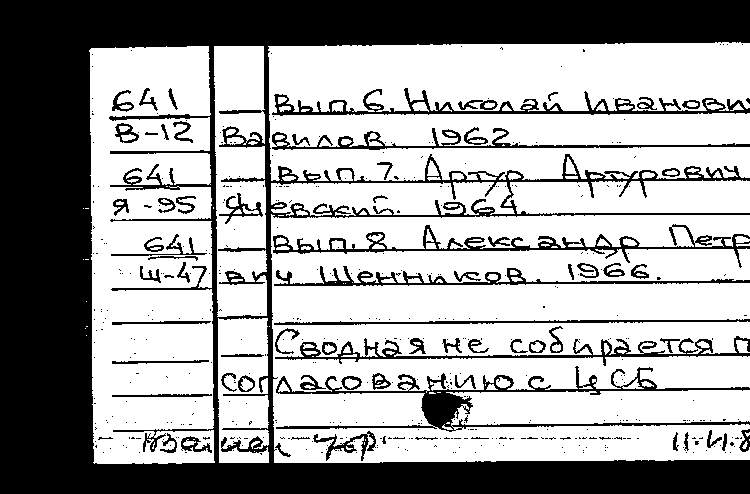 641 Вып. 6. Николай Иванови
В-12 Вавилов. 1962
641 Вып. 7. Артур Артурович
Я-95 Ячевский. 1964.
641 Вып. 8. Александр Петр
Ш-47 вич Шенников. 1966.
Сводная не собирается п
согласованию с ЦСБ